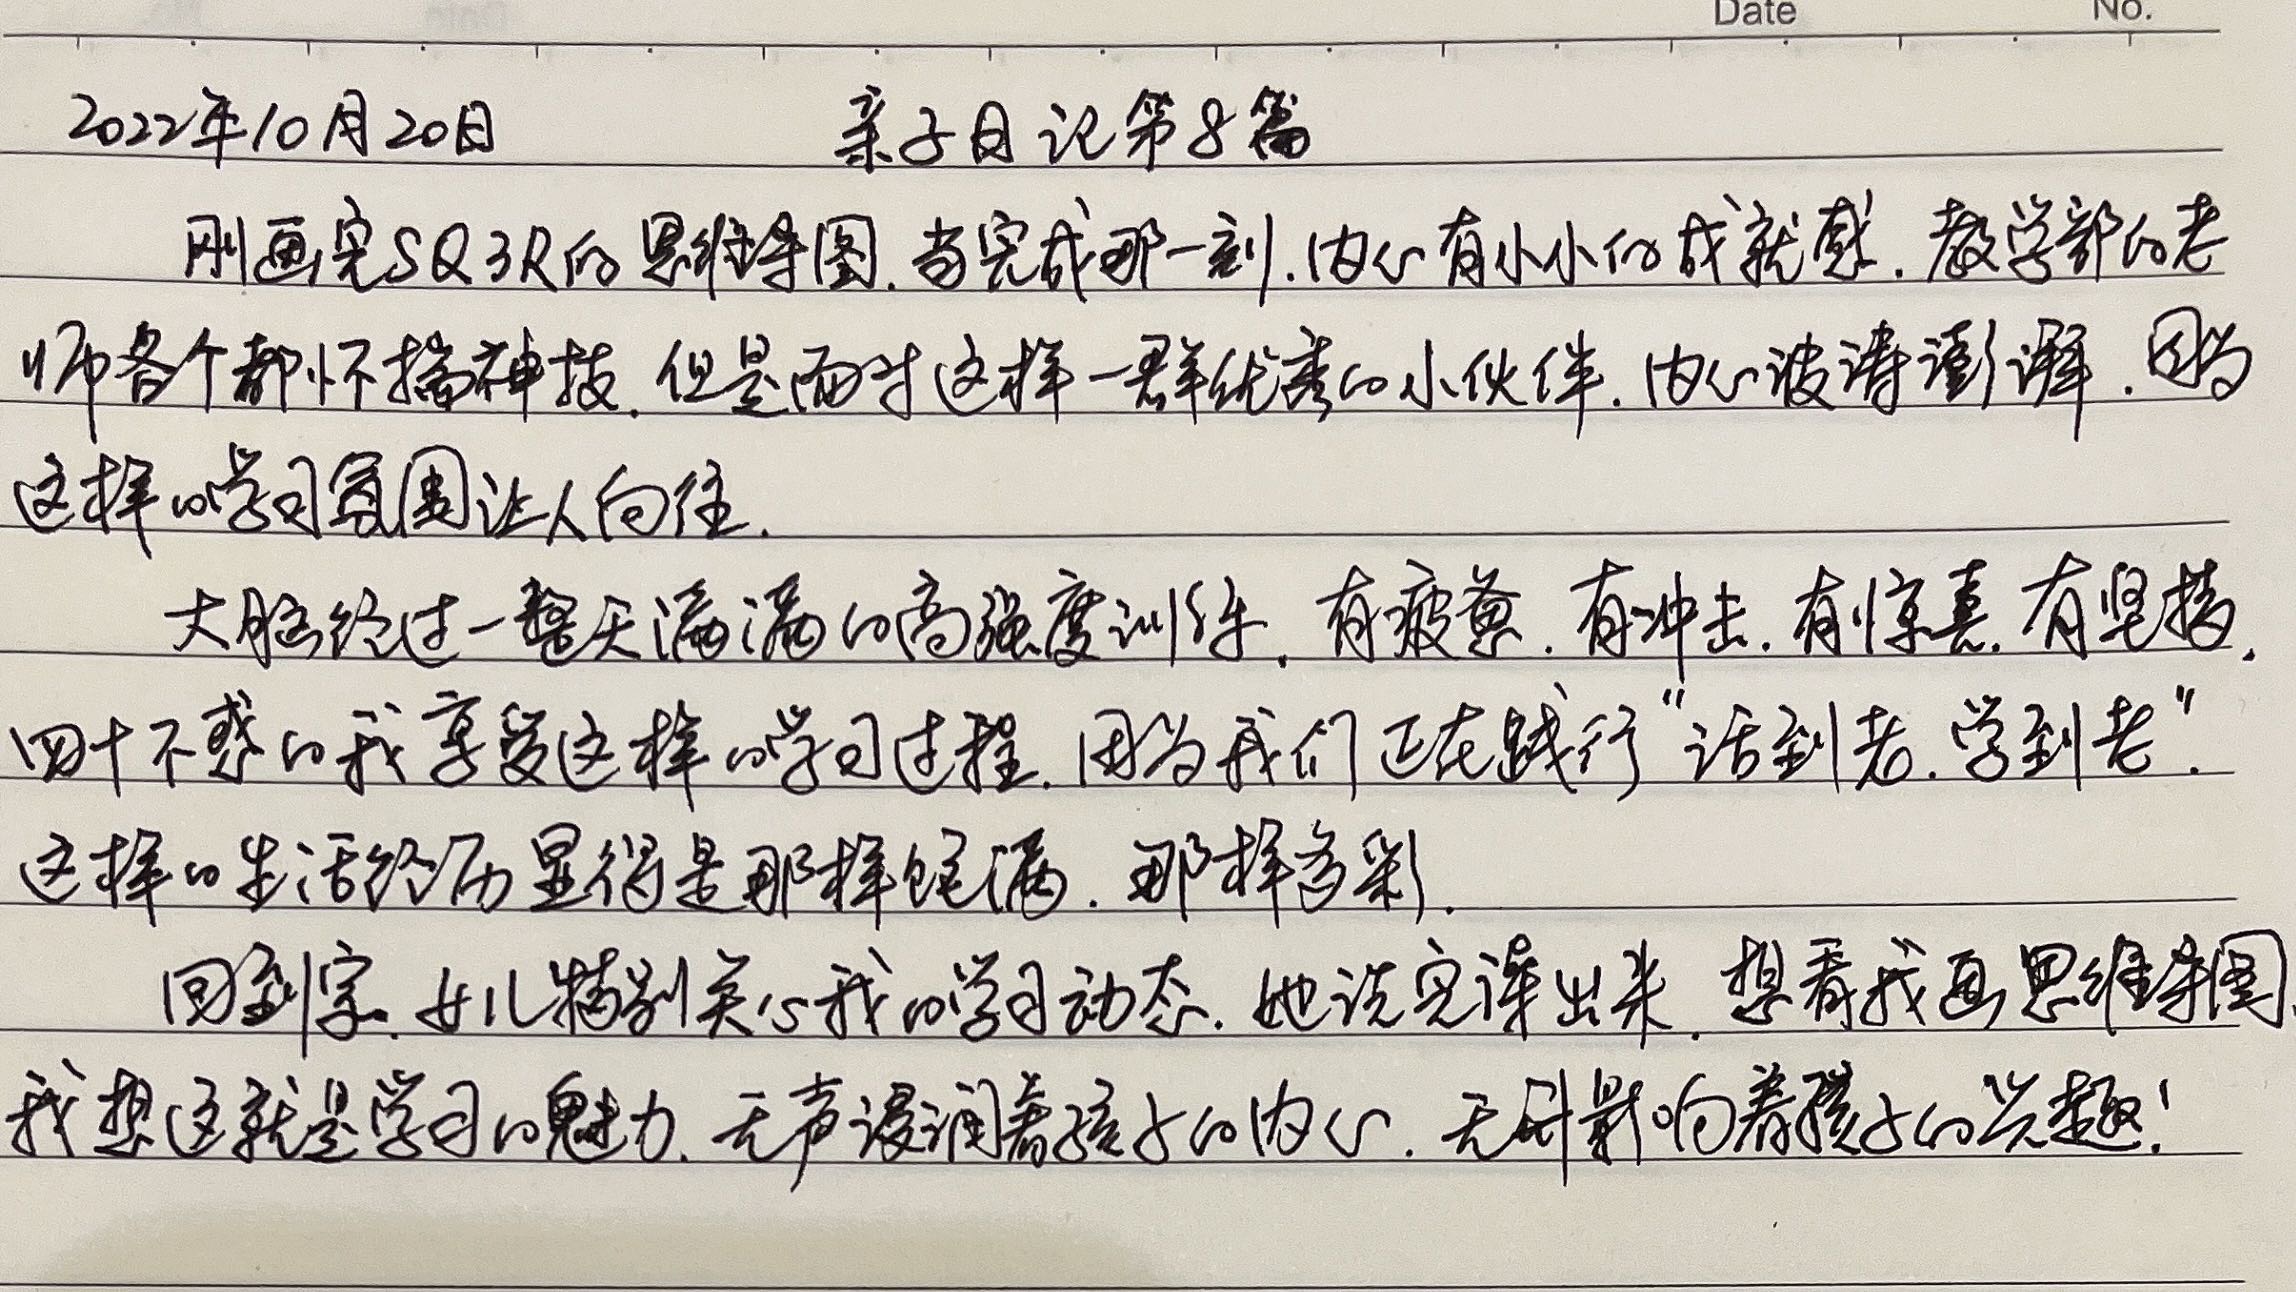 Date No.
2022年10月20日 亲子日记第8篇
刚画完SQ3R的思维导图.当完成那一刻.内心有小小的成就感.教学部的老
师各个都怀揣神技.但是面对这样一群优秀的小伙伴.内心波涛澎湃.因为
这样的学习氛围让人向往.
大脑经过一整天满满的高强度训练.有疲惫.有冲击.有惊喜.有坚持.
四十不惑的我享受这样的学习过程.因为我们正在践行“活到老.学到老”.
这样的生活经历显得是那样饱满.那样多彩.
回到家.女儿特别关心我的学习动态.她说完课出来.想看我画思维导图.
我想这就是学习的魅力.无声浸润着孩子的内心.无形影响着孩子的兴趣!